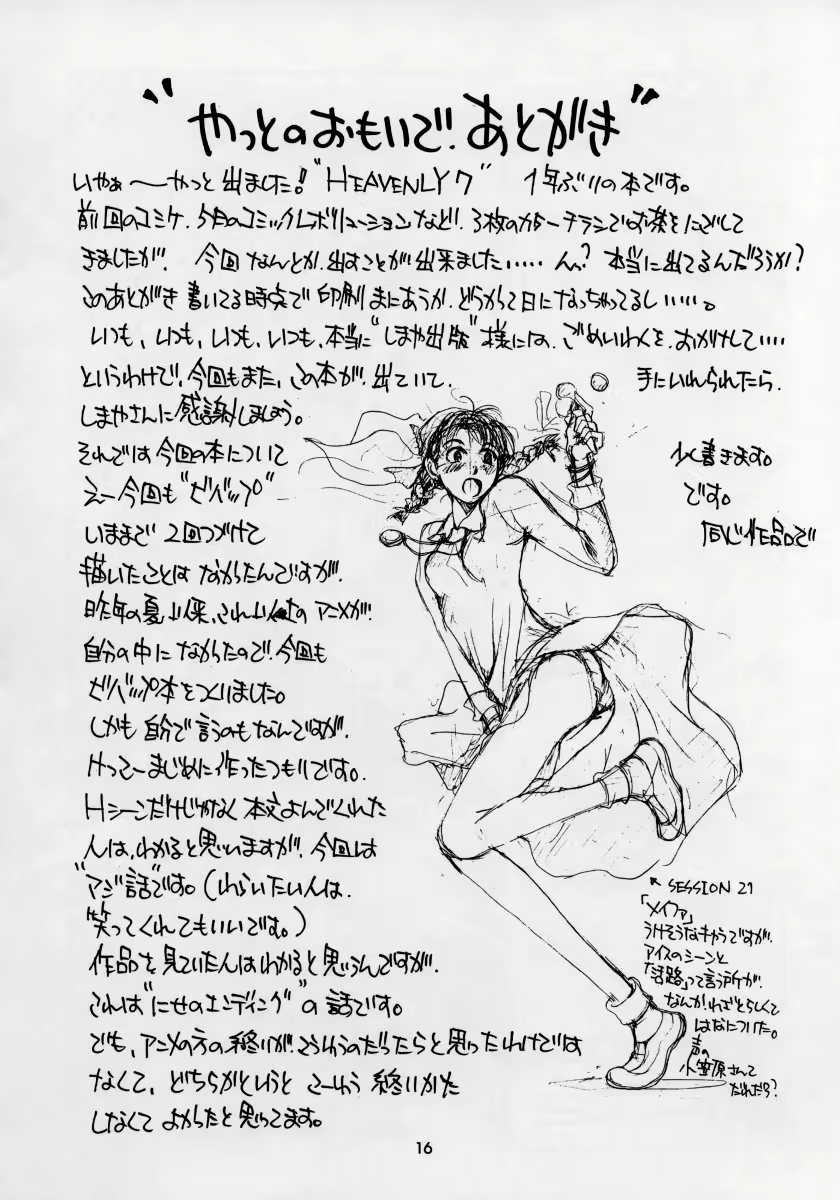 “やっとのおもいで！あとがき”
いやぁ〜やっと出ました！“HEAVENLY 7” 1年ぶりの本です。
前回のコミケ、5月のコミックレボリューションなど、3枚のカラーチラシでお茶をにごして
きましたが、今回なんとか出すことが出来ました‥‥‥ん？本当に出てるんだろうか？
このあとがき書いてる時点で印刷まにあうか、どうかって日になっちゃってるし‥‥‥。
いつも、いつも、いつも、いつも、本当に“しまや出版”様には、ごめいわくを、おかけして‥‥
というわけで、今回もまた、この本が、出ていて、手にいれられたら、
しまやさんに感謝しましょう。
それでは今回の本について少く書きます。
えー今回も“ビバップ”です。
いままで2回つづけて同じ作品で
描いたことはなかったんですが、
昨年の夏以来、これ以上のアニメが
自分の中になかったので、今回も
ビバップ本をつくりました。
しかも自分で言うのもなんですが、
けっこーまじめに作ったつもりです。
Hシーンだけじゃなく本文よんでくれた
人は、わかると思いますが、今回は
“マジ話”です。（わらいたい人は、
笑ってくれてもいいです。）
作品を見ていた人はわかると思うんですが、
これは“にせのエンディング”の話です。
でも、アニメの方の終りがこういうのだったらと思ったわけでは
なくて、どちらかというとこーゆう終いかた
しなくてよかったと思ってます。
↖ SESSION 21
「メイファ」
うけそうなキャラですが、
アイスのシーンと
「活路」って言う所が、
なんか、わざとらしくて
はなについた。
声の
小笠原さんて
だれだろ？
16